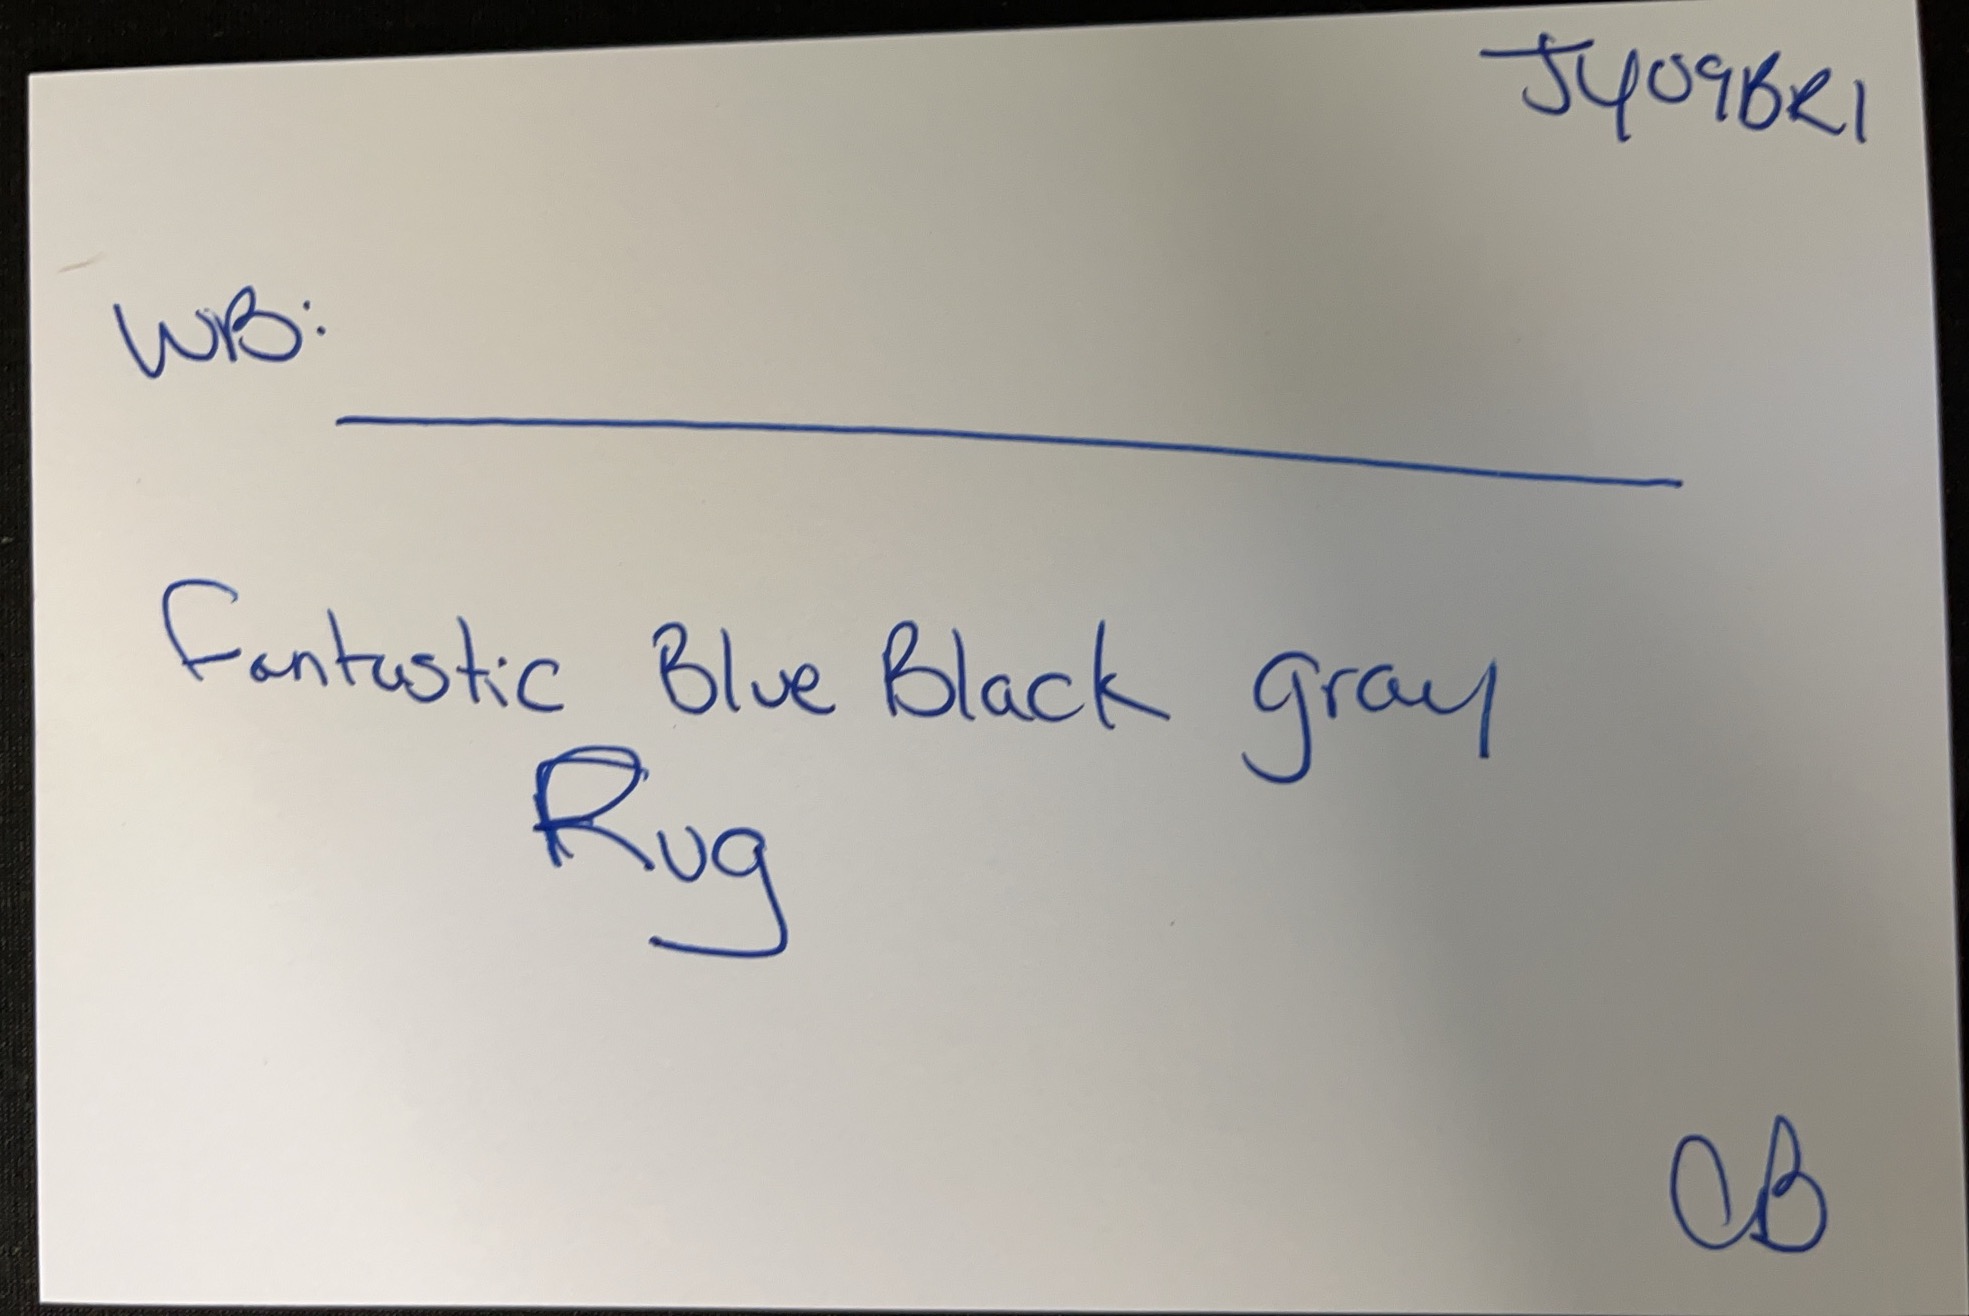 J409BR1
WB:
Fantastic Blue Black gray
Rug
CB